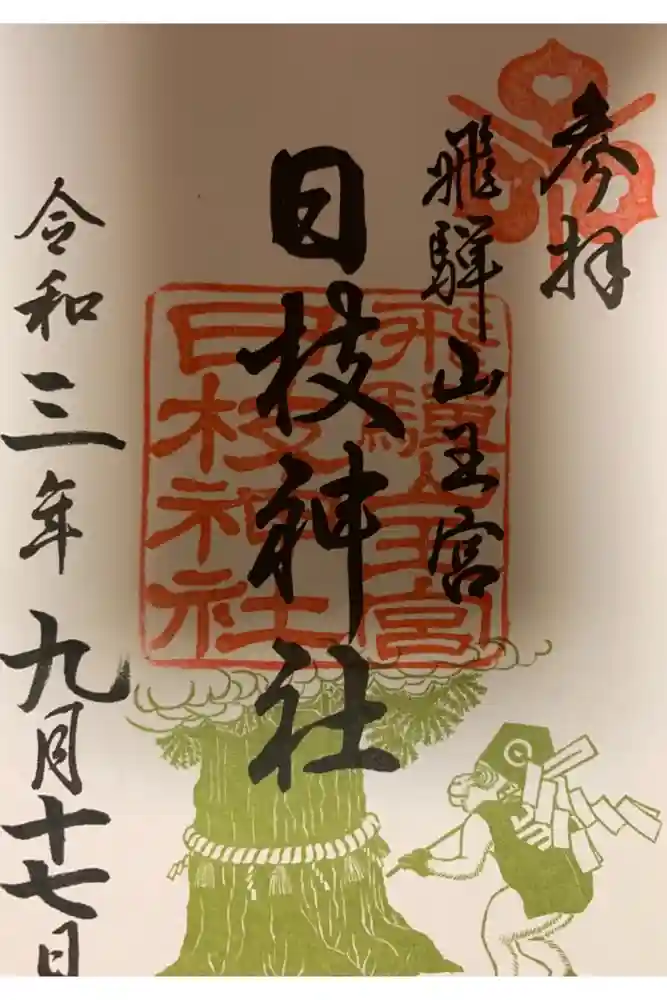 参拝
飛騨山王宮
日枝神社
令和三年九月十七日
飛驒山王宮
日枝神社